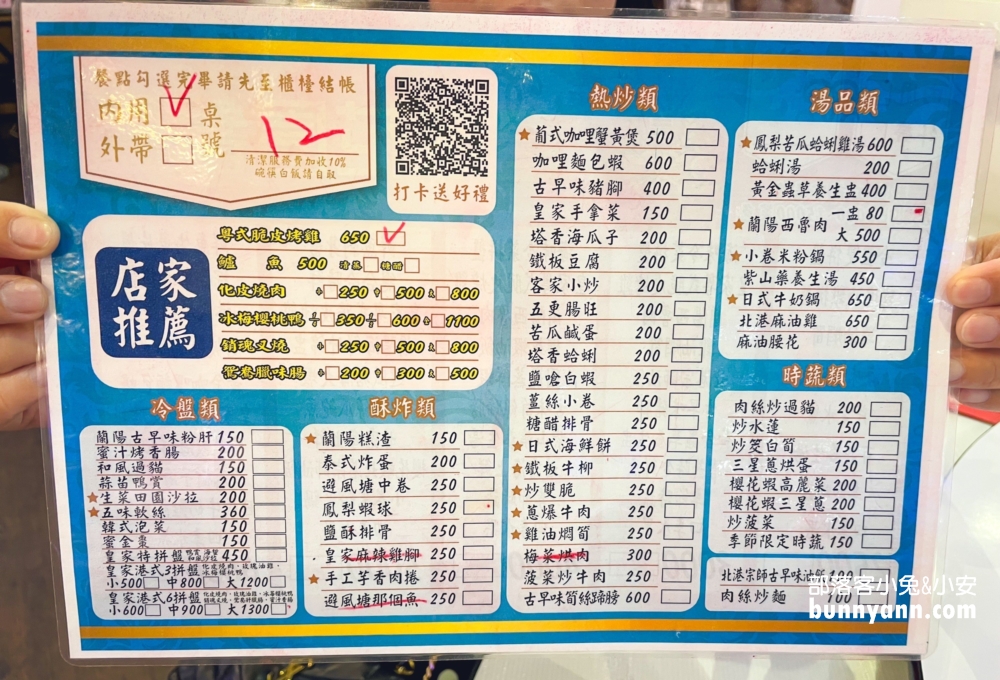 餐點勾選完畢請先至櫃檯結帳
內用 桌
外帶 號
12
清潔服務費加收10%
碗筷白飯請自取
打卡送好禮
店家
推薦
粵式脆皮烤雞 650
鱸魚 500 清蒸 糖醋
化皮燒肉 小 250 中 500 大 800
冰梅櫻桃鴨 350 600 1100
銷魂叉燒 小 250 中 500 大 800
鴛鴦臘味腸 小 200 中 300 大 500
冷盤類
蘭陽古早味粉肝 150
蜜汁烤香腸 200
和風過貓 150
蒜苗鴨賞 200
★生菜田園沙拉 200
★五味軟絲 360
韓式泡菜 150
蜜金棗 150
皇家特拼盤 450
皇家港式3拼盤 化皮燒肉、玫瑰油雞、冰梅櫻桃鴨
小500 中800 大1200
皇家港式6拼盤
小600 中900 大1300
酥炸類
★蘭陽糕渣 150
泰式炸蛋 200
避風塘中卷 250
鳳梨蝦球 250
鹽酥排骨 250
皇家麻辣雞腳 250
★手工芋香肉捲 250
避風塘那個魚 250
熱炒類
★葡式咖哩蟹黃煲 500
咖哩麵包蝦 600
古早味豬腳 400
皇家手拿菜 150
塔香海瓜子 200
鐵板豆腐 200
客家小炒 200
五更腸旺 200
苦瓜鹹蛋 200
塔香蛤蜊 200
鹽嗆白蝦 250
薑絲小卷 250
糖醋排骨 250
★日式海鮮餅 250
★鐵板牛柳 250
★炒雙脆 250
★蔥爆牛肉 250
★雞油燜筍 250
梅菜烘肉 300
菠菜炒牛肉 250
古早味筍絲蹄膀 600
湯品類
★鳳梨苦瓜蛤蜊雞湯 600
蛤蜊湯 200
黃金蟲草養生盅 400
★蘭陽西魯肉 一盅 80
大 500
★小卷米粉鍋 550
紫山藥養生湯 450
★日式牛奶鍋 650
北港麻油雞 650
麻油腰花 300
時蔬類
肉絲炒過貓 200
炒水蓮 150
炒筊白筍 150
三星蔥烘蛋 150
櫻花蝦高麗菜 200
櫻花蝦三星蔥 200
炒菠菜 150
季節限定時蔬 150
北港宗師古早味油飯
肉絲炒麵 100
部落客小兔&小安
bunnyann.com